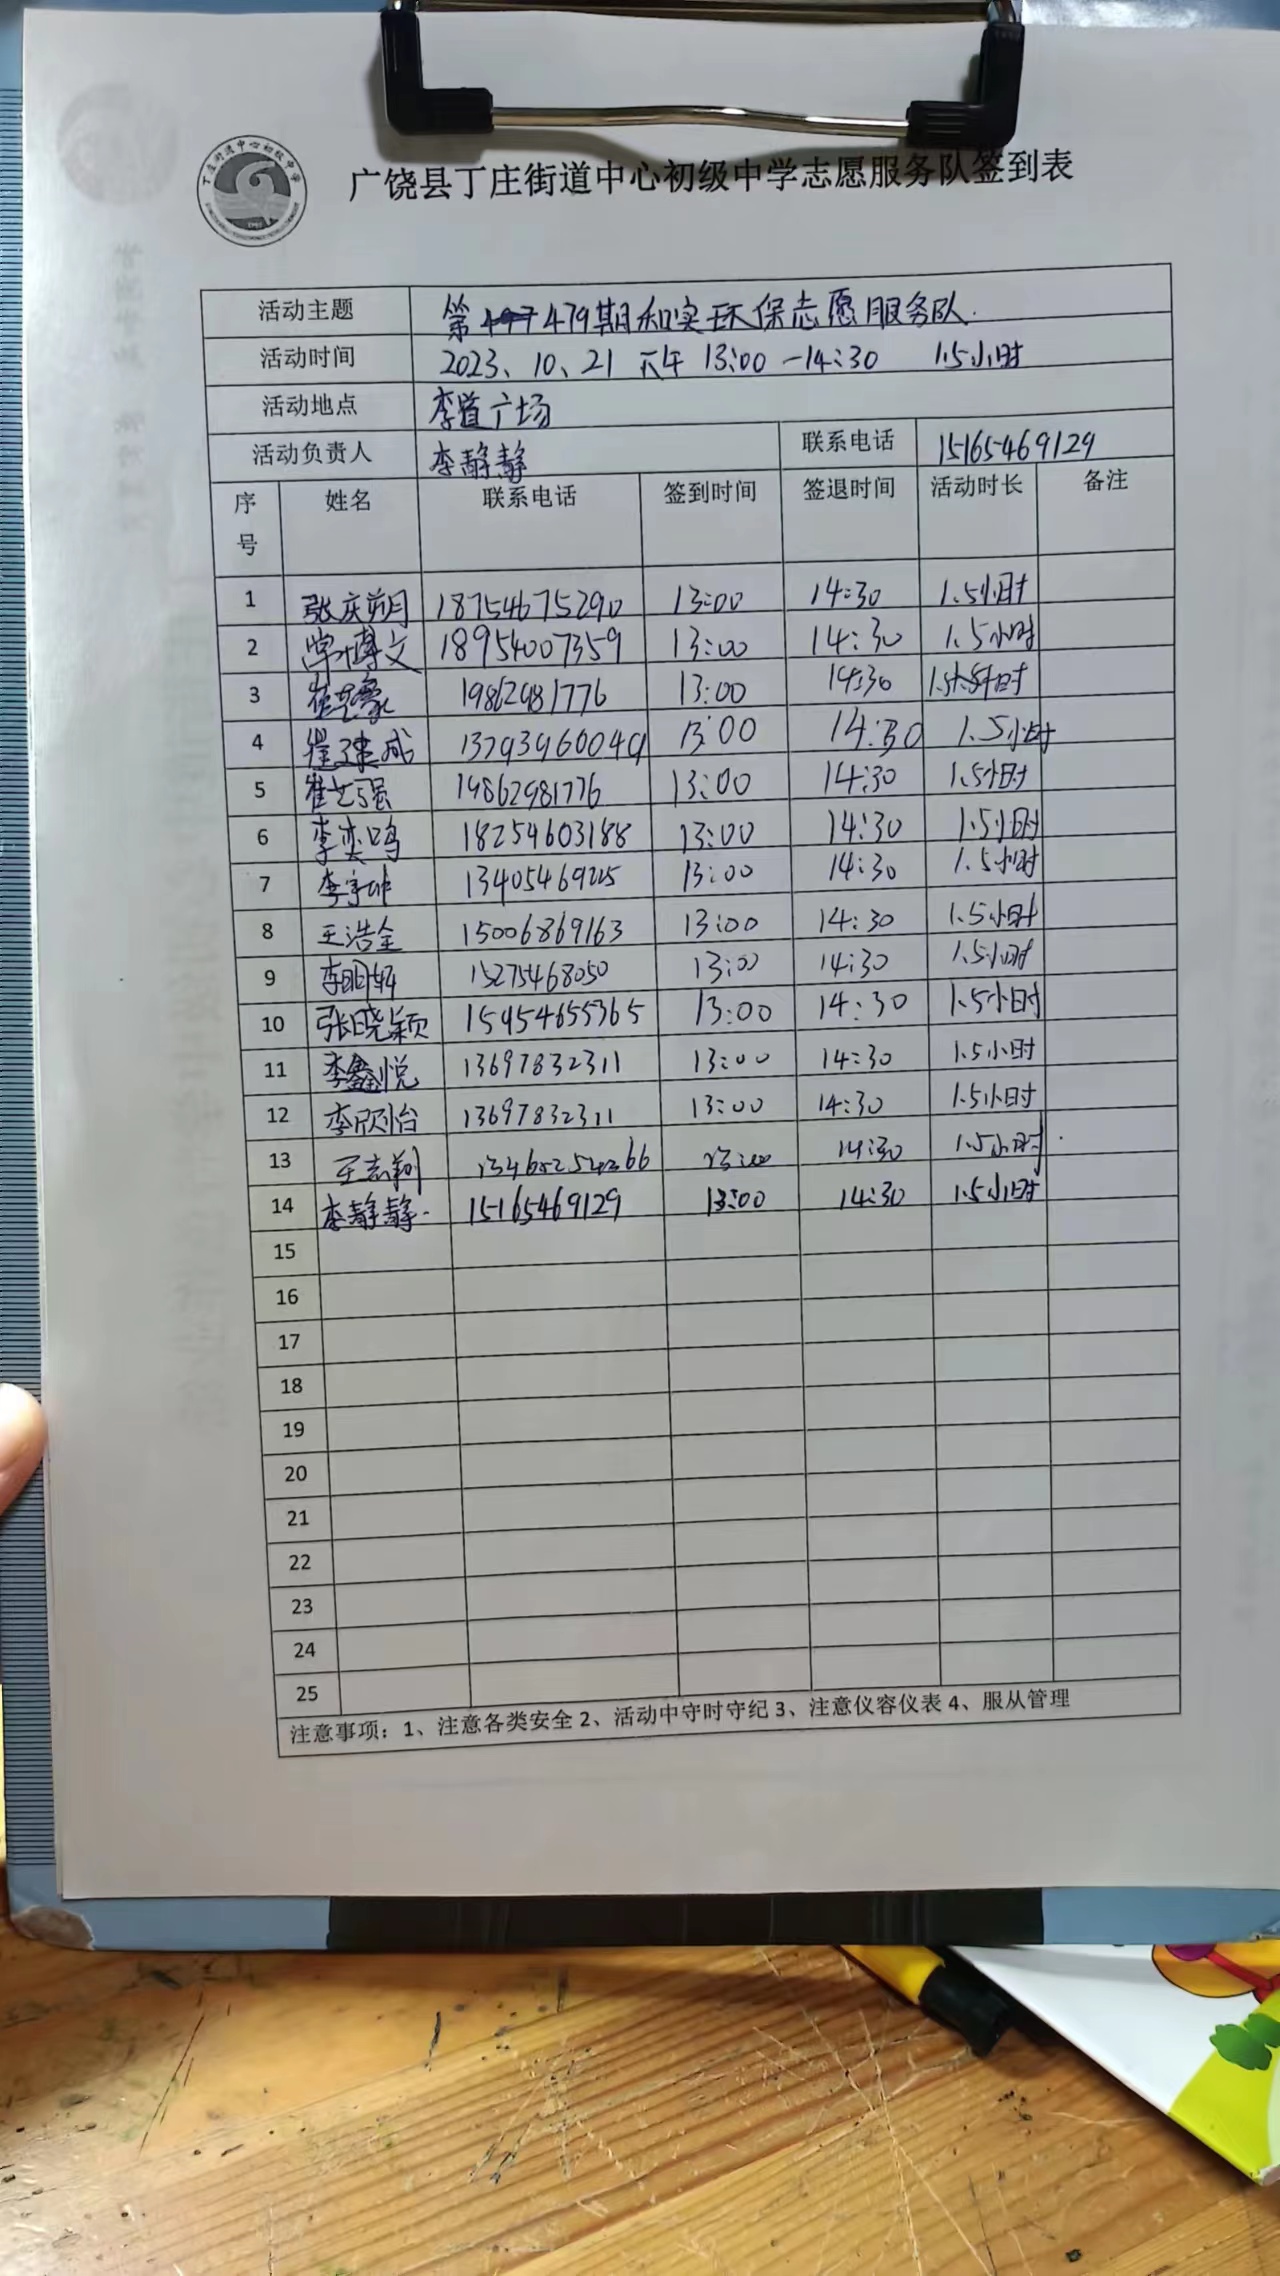 丁庄街道中心初级中学
广饶县丁庄街道中心初级中学志愿服务队签到表
活动主题 第479期和实环保志愿服务队.
活动时间 2023、10、21 下午 13:00 -14:30 1.5小时
活动地点 李道广场
活动负责人 李静静 联系电话 15165469129
序号 姓名 联系电话 签到时间 签退时间 活动时长 备注
1 张庆朔 18754675290 13:00 14:30 1.5小时
2 常博文 18954007359 13:00 14:30 1.5小时
3 19862981776 13:00 14:30 1.5小时
4 崔建成 13793960049 13:00 14:30 1.5小时
5 崔艺强 19862981776 13:00 14:30 1.5小时
6 李奕鸣 18254603188 13:00 14:30 1.5小时
7 李宇坤 13:00 14:30 1.5小时
8 王浩全 15006869163 13:00 14:30 1.5小时
9 李明轩 15275468050 13:00 14:30 1.5小时
10 张晓颖 15954655365 13:00 14:30 1.5小时
11 李鑫悦 13697832311 13:00 14:30 1.5小时
12 李欣怡 13697832311 13:00 14:30 1.5小时
13 王志翔 13:00 14:30 1.5小时
14 李静静. 15165469129 13:00 14:30 1.5小时
15
16
17
18
19
20
21
22
23
24
25
注意事项：1、注意各类安全 2、活动中守时守纪 3、注意仪容仪表 4、服从管理